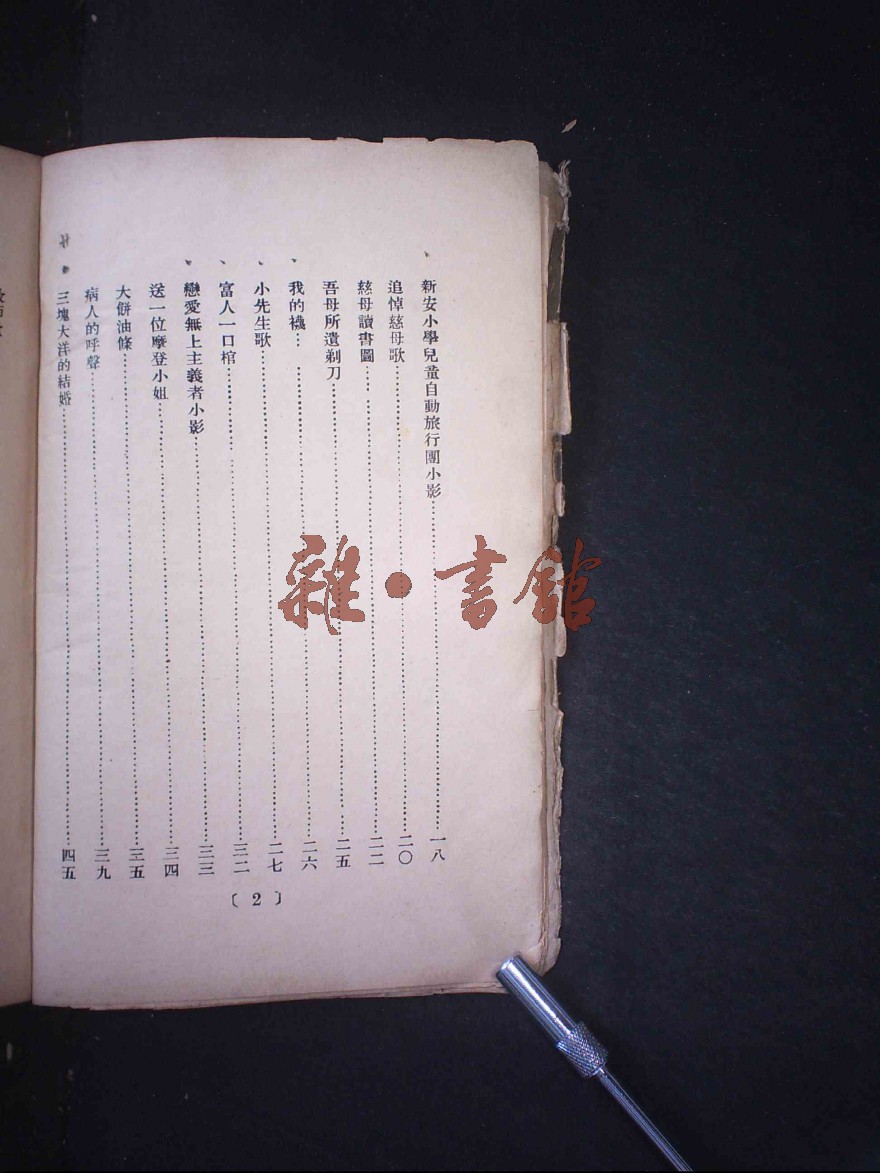 新安小學兒童自動旅行團小影……一八
追悼慈母歌……二〇
慈母讀書圖……二二
吾母所遺剃刀……二五
我的襪……二六
小先生歌……二七
富人一口棺……三二
戀愛無上主義者小影……三三
送一位摩登小姐……三四
大餅油條……三五
病人的呼聲……三九
三塊大洋的結婚……四五
〔2〕
雜·書館